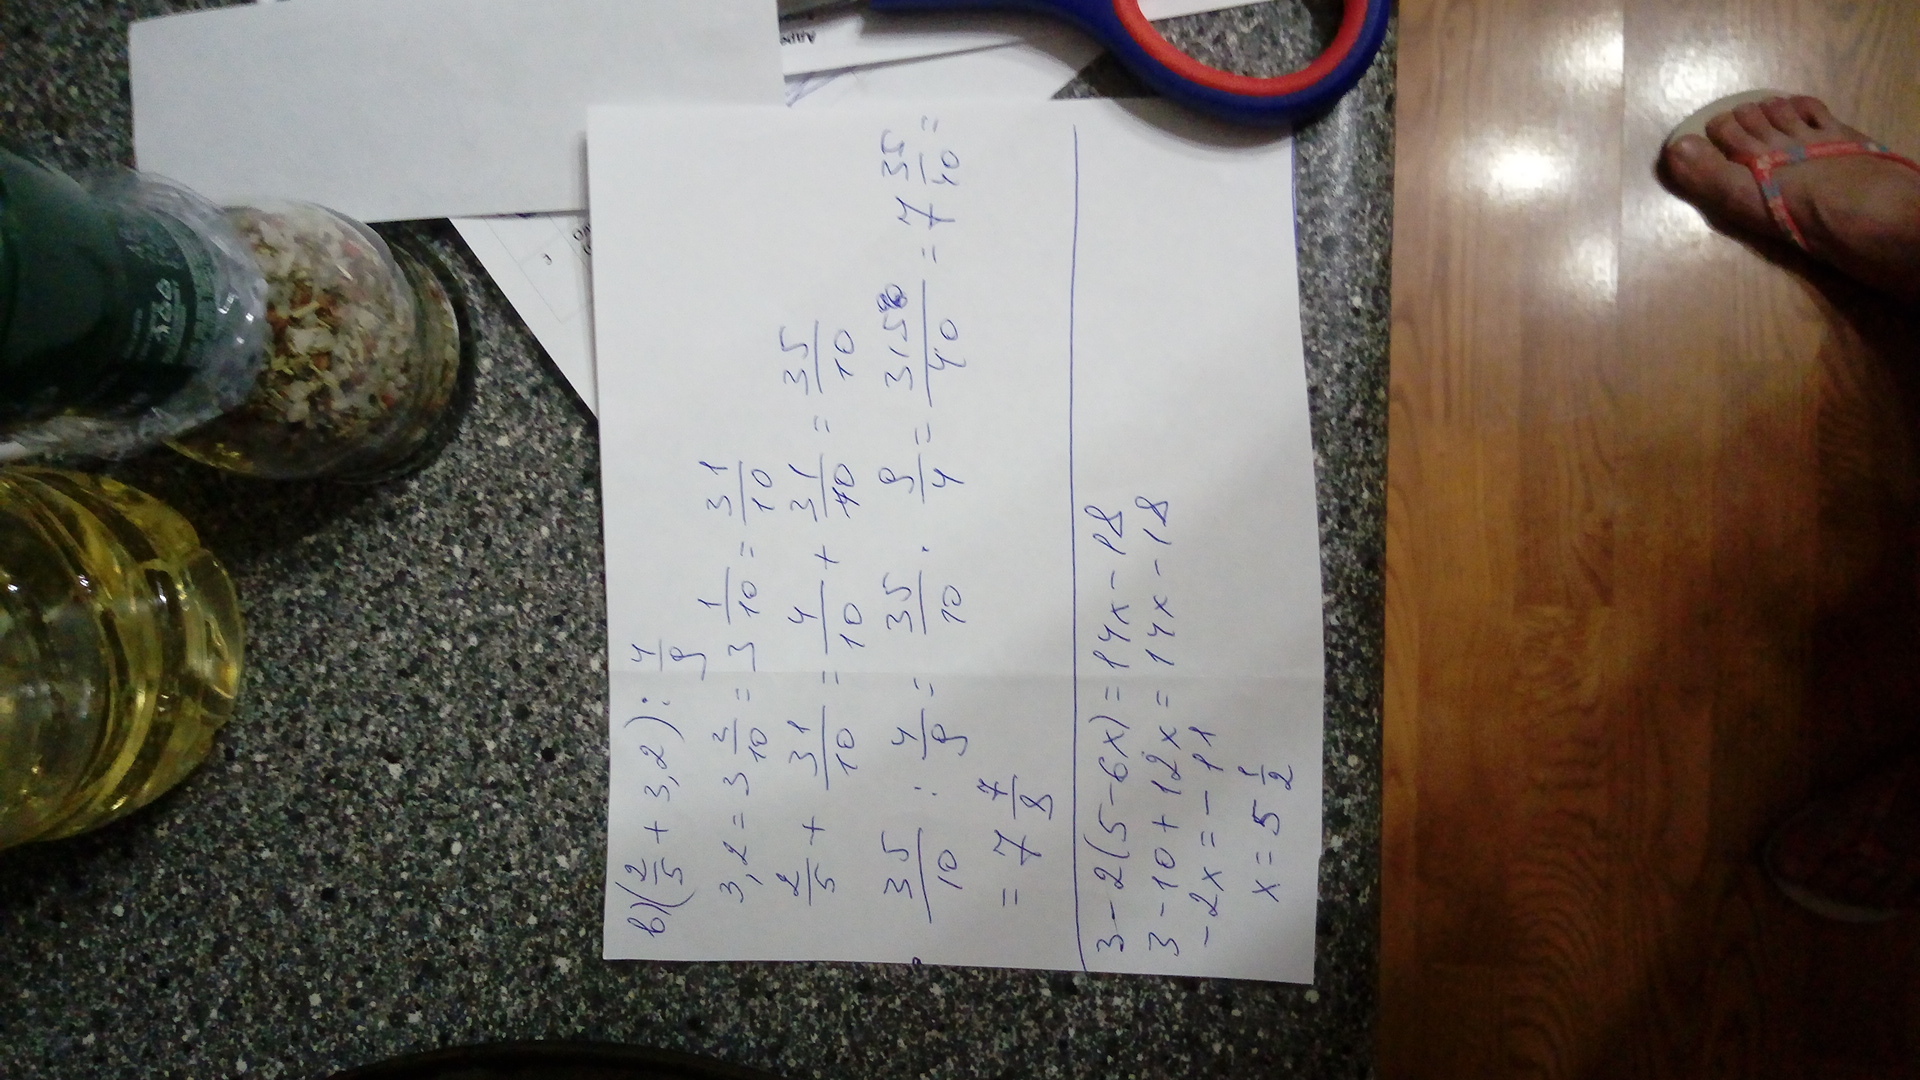 в) (2/5 + 3,2) : 4/9
3,2 = 3 2/10 = 3 1/10 = 31/10
2/5 + 31/10 = 4/10 + 31/10 = 35/10
35/10 : 4/9 = 35/10 · 9/4 = 315/40 = 7 35/40 =
= 7 7/8
3 - 2(5 - 6x) = 14x - 18
3 - 10 + 12x = 14x - 18
- 2x = - 11
x = 5 1/2